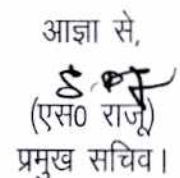 आज्ञा से,
(एस0 राजू)
प्रमुख सचिव।